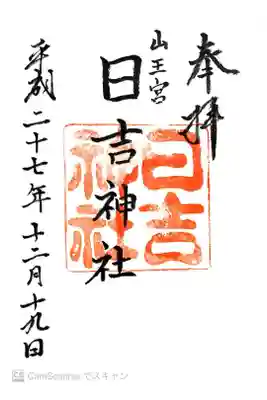 奉拝
山王宮
日吉神社
日吉
神社
平成二十七年十二月十九日
CamScanner でスキャン